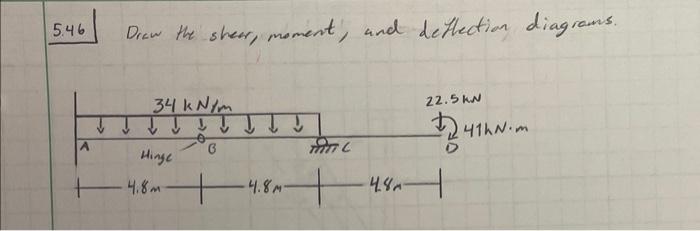 5.46 Draw the shear, moment, and deflection diagrams.
34 kN/m 22.5 kN
41kN·m
A Hinge B C D
4.8m 4.8m 4.8m